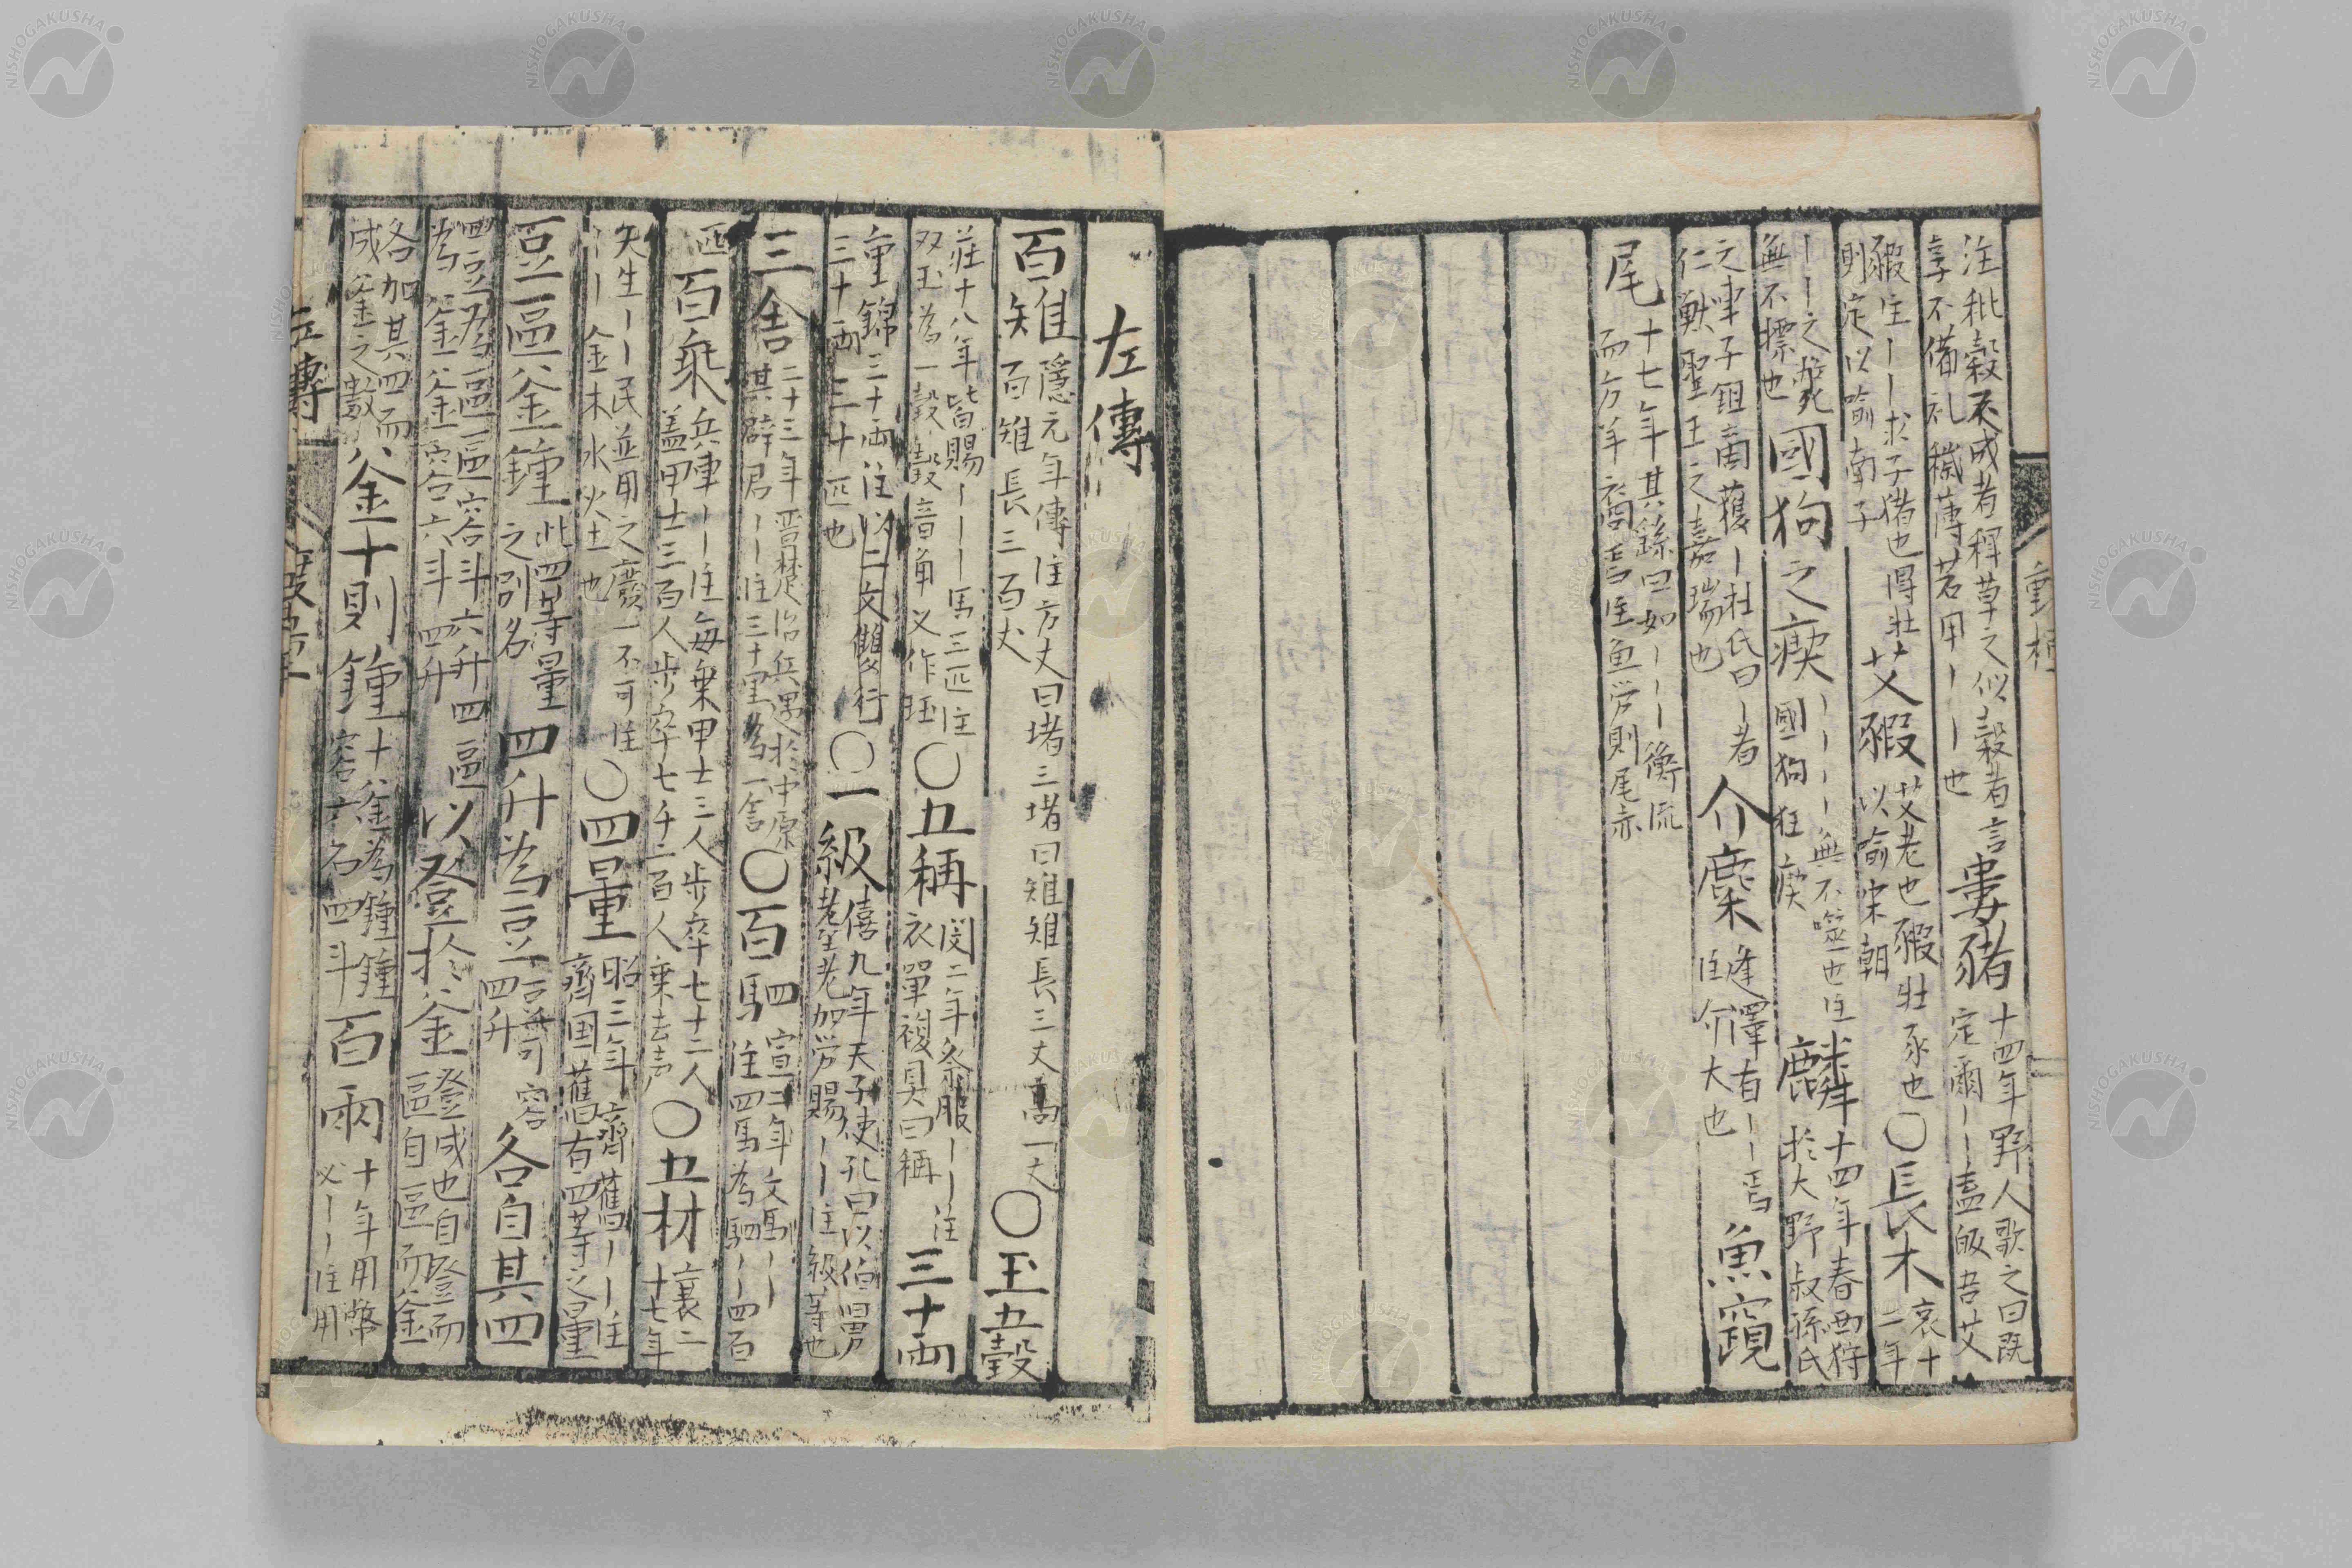 注秕穀不成者稗草之似穀者言
享不備礼穢薄若用丨丨也
婁豬
十四年野人歌之曰既
定爾丨丨盍皈吾艾
豭注丨丨求子猪也得壯
則定以喻南子
艾豭
艾老也豭壯豕也
以喻宋朝
〇長木
哀十
二年
丨丨之斃
無不摽也
國狗之瘈
丨丨丨丨無不噬也注
國狗狂瘈
麟
十四年春西狩
於大野叔孫氏
之車子鉏商獲丨杜氏曰丨者
仁獸聖王之嘉瑞也
介麋
逢澤有丨丨焉
注介大也
魚竀
尾
十七年其繇曰如丨丨丨衡流
而方羊裔焉注魚勞則尾赤
重
左傳
百雉
隱元年傳注方丈曰堵三堵曰雉雉長三丈高一丈
百雉長三百丈
〇玉五瑴
莊十八年皆賜丨丨丨馬三匹注
双玉為一瑴瑴音角又作珏
〇五稱
閔二年祭服丨丨注
衣單複具曰稱
三十両
重錦三十両注以二丈雙行
三十両三十匹也
〇一級
僖九年天子使孔曰以伯舅
耄老加労賜丨丨注級等也
三舍
二十三年晋楚治兵遇於中原
其辟君丨丨注三十里為一舍
〇百駟
宣二年文馬丨丨
注四馬為駟丨丨四百
匹
百乘
兵車丨丨注毎乗甲士三人歩卒七十二人
盖甲士三百人歩卒七千二百人乗去声
〇五材
襄二
十七年
天生丨丨民並用之廢一不可注
丨丨金木水火土也
〇四量
昭三年齊舊丨丨注
齊国舊有四等之量
豆區釜鍾
此四等量
之別名
四升為豆
豆可容
四升
各自其四
四豆為區區容斗六升四區
為釜釜容六斗四升
以登於釜
登成也自登而
區自區而釜
各加其四而
成釜之數
釜十則鍾
十釜為鍾鍾
容六石四斗
百両
十年用幣
必丨丨注用
左傳